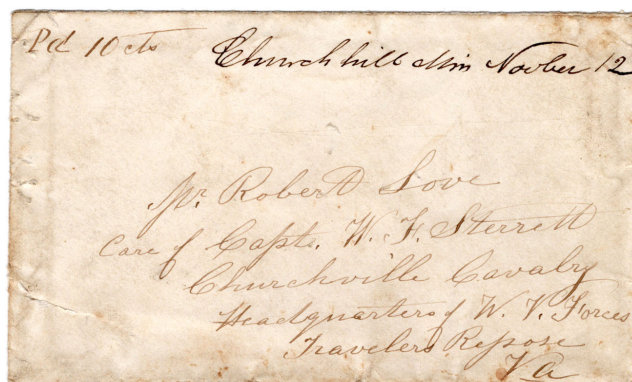 Pd 10 cts
Churchhill Min Novber 12
Mr. Robert Love
Care of Capt. W. F. Sterrett
Churchville Cavalry
Headquarters of W. V. Forces
Travelers Repose
Va